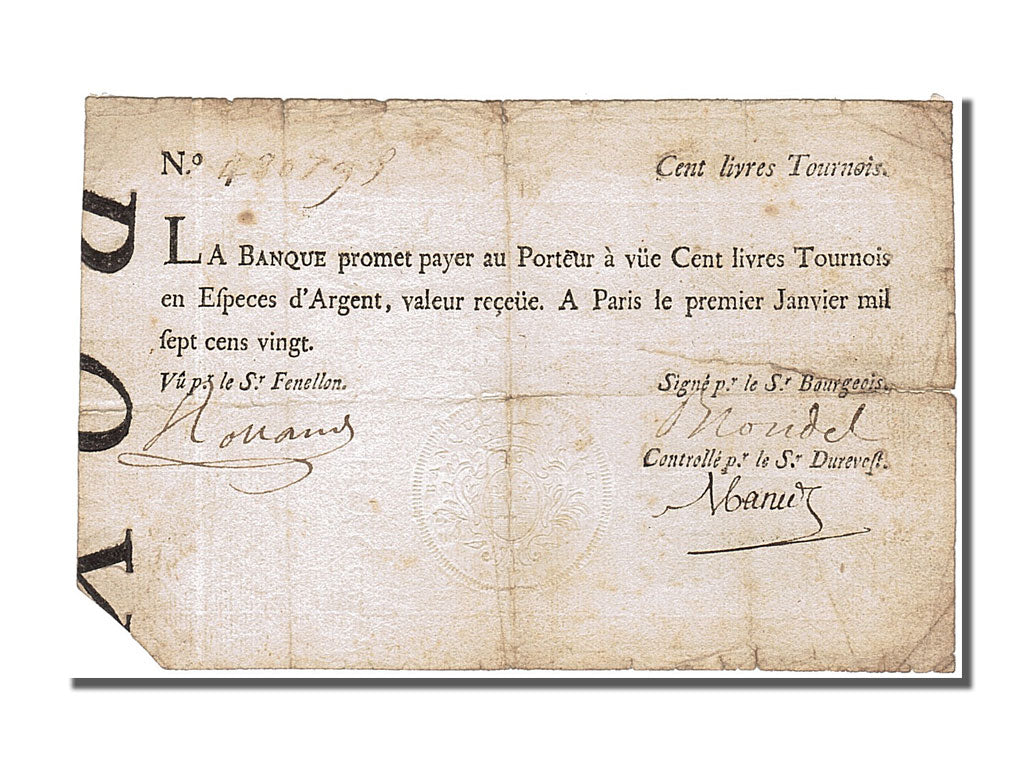 N.º 430793 Cent livres Tournois.
LA BANQUE promet payer au Porteur à vüe Cent livres Tournois
en Eſpeces d'Argent, valeur reçeüe. A Paris le premier Janvier mil
ſept cens vingt.
Vû p.r le S.r Fenellon. Signé p.r le S.r Bourgeois.
Controllé p.r le S.r Dureveſt.
ROY